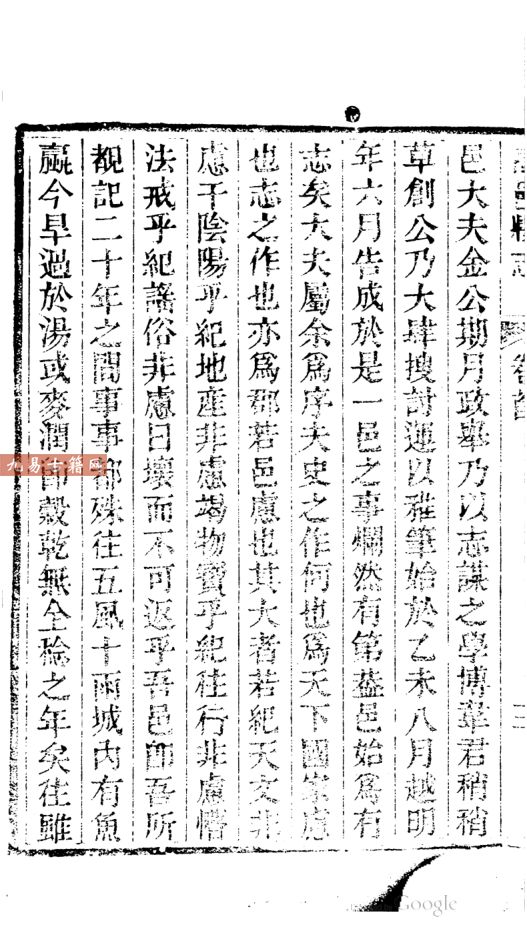 邑大夫金公期月政舉乃以志謀之學博韋君稍稍
草創公乃大肆搜討運以椽筆始於乙未八月越明
年六月告成於是一邑之事爛然有第葢邑始爲有
志矣大夫屬余爲序夫史之作何也爲天下國家慮
也志之作也亦爲郡若邑慮也其大者若紀天文非
慮干陰陽乎紀地產非慮竭物寶乎紀往行非慮
法戒乎紀謠俗非慮日壞而不可返乎吾邑卽吾所
覩記二十年之間事事都殊往五風十雨城內有魚
贏今旱過於湯或麥潤卽穀乾無全稔之年矣往雖
九易古籍网
Google